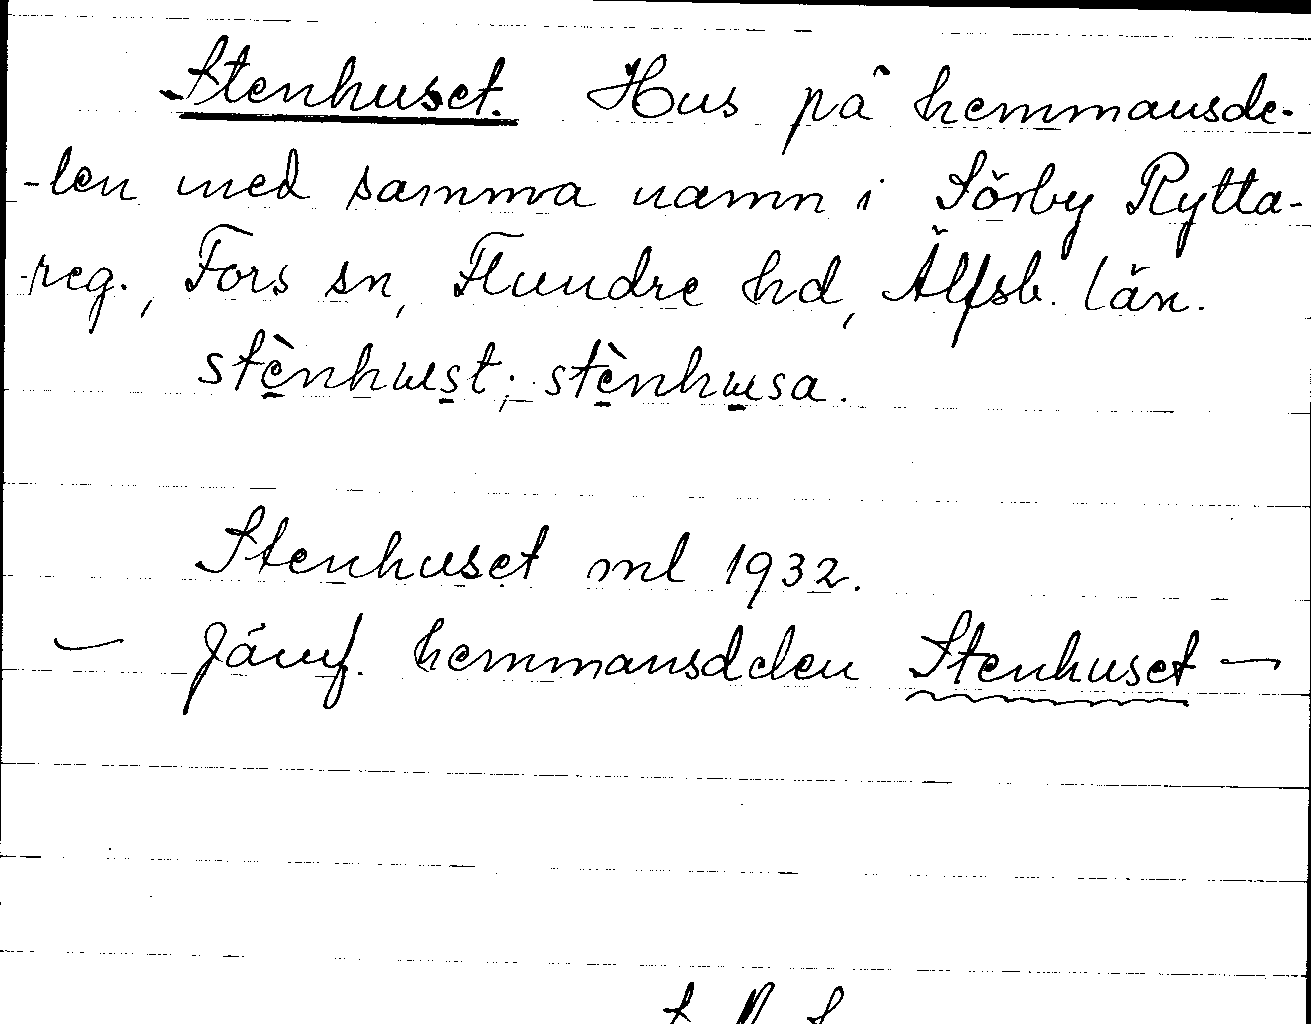 Stenhuset. Hus på hemmansde-
-len med samma namn i Sörby Rytta-
-reg., Fors sn, Flundre hd, Älfsb. län.
stènhust; stènhusa.
Stenhuset ml 1932.
— Jämf. hemmansdelen Stenhuset —